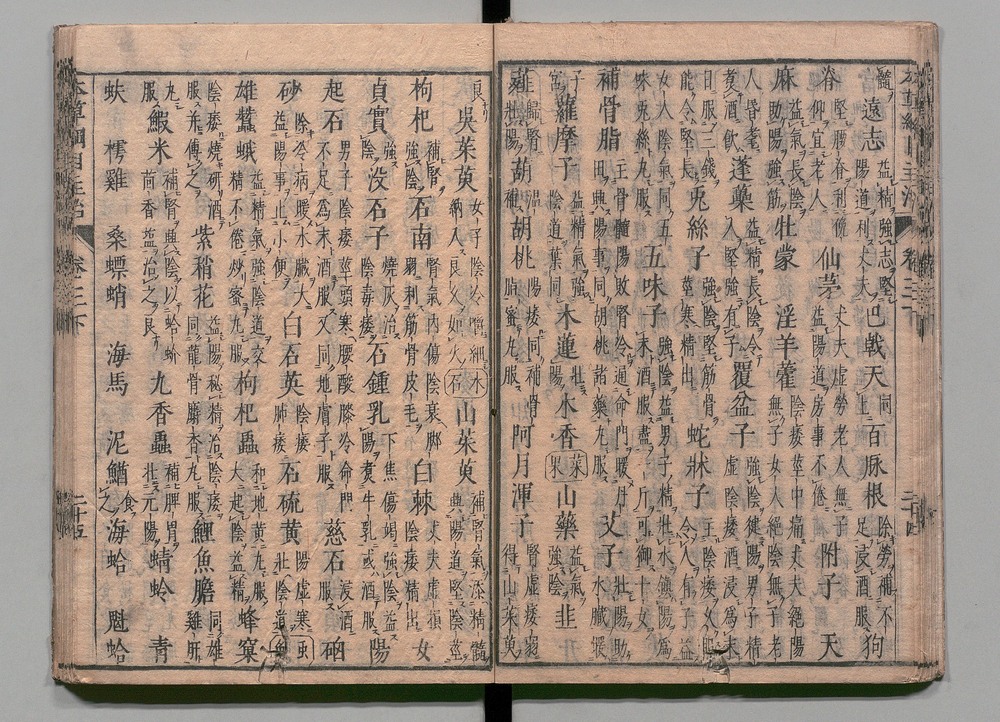 髓 遠志 益精強志堅陽道利丈夫 巴戟天 同 百脉根 除勞補不足浸酒服 狗
脊 堅腰脊利俛仰宜老人 仙茅 丈夫虛勞老人無子益陽道房事不倦 附子 天
麻 益氣長陰助陽強筋 牡蒙 淫羊藿 陰痿莖中痛丈夫絶陽無子女人絶陰無子老
人昏耄煮酒飲 蓬蘽 益精長陰令人堅強有子 覆盆子 強陰健陽男子精虛陰痿酒浸爲末
日服三錢能令堅長 兎絲子 強陰堅筋骨莖寒精出 蛇牀子 主陰痿久服令人有子益
陰氣同五味兎絲丸服 五味子 強陰益男子精壯水鎮陽爲末酒服盡一斤可御十女
補骨脂 主骨髓傷敗腎冷通命門暖丹田興陽事同胡桃諸藥丸服 艾子 壯陽助水臟暖
子宮 蘿摩子 益精氣強陰道葉同 木蓮 壯陽 木香 菜果 山藥 益氣強陰 韭
薤 歸腎壯陽 葫 溫補 胡桃 陽痿同補骨脂蜜丸服 阿月渾子 腎虛痿弱得山茱萸
良 吳茱萸 女子陰冷嚼細納入良久如火 木石 山茱萸 補腎氣添精髓興陽道堅陰莖
枸杞 補腎強陰 石南 腎氣內傷陰衰脚弱利筋骨皮毛 白棘 丈夫虛損陰痿精出 女
貞實 強陰 没石子 燒灰治陰毒痿 石鍾乳 下焦傷竭強陰益陽煮牛乳或酒服 陽
起石 男子陰痿莖頭寒腰酸膝冷命門不足爲末酒服又同地膚子服 慈石 浸酒服 硇
砂 除冷病暖水臟大益陽事止小便 白石英 陰痿肺痿 石硫黃 陽虛寒壯陰道 虫魚
雄蠶蛾 益精氣強陰道交精不倦炒蜜丸服 枸杞蟲 和地黃丸服大起陰益精 蜂窠
陰痿燒研酒服并傅之 紫稍花 益陽秘精治陰痿同龍骨麝香丸服 鯉魚膽 同雄雞肝
丸服 鰕米 補腎興陰以蛤蚧茴香鹽治之良 九香蟲 補脾胃壯元陽 蜻蛉 青
蚨 樗雞 桑螵蛸 海馬 泥鰌 食之 海蛤 魁蛤